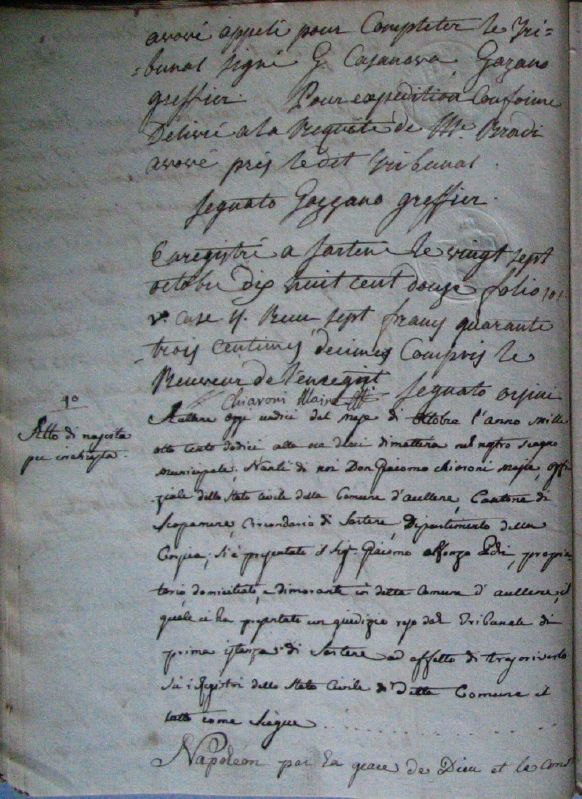 avoué appelé pour Completer le Tri=
=bunal signé G Casanova, Gozano
greffier. Pour expedition Conforme
Delivré a la Requête de Mr. Bradi
avoué près ledit Tribunal.
segnato Gozzano greffier.
Enregistré a Sartene le vingt sept
octobre dix huit cent douze folio 101
vo. case 4. Reçu sept francs quarante
trois centimes décimes Compris le
Receveur de l'enregist. segnato orsini
Chiaroni Maire
1º
Atto di nascita
per
Aullene oggi undici del mese di Ottobre l'anno mille
otto cento dodici alle ore dieci di mattina nel nostro
municipale, Avanti di noi Don Giacomo Chiaroni Maire, offi
ziale dello Stato Civile della Comune d'aullene, Cantone di
Scopamene, Circondario di Sartene, Dipartimento della
Corsica, si è presentato il Sigr. Giacomo Alfonzo, proprie
tario domiciliato, e dimorante in detta Comune d'aullene, il
quale ci ha presentato un giudizio reso dal Tribunale di
prima istanza di Sartene ad effetto di trascriverlo
su i Registri dello Stato Civile di detta Comune et
tutto come siegue
Napoléon par la grace de Dieu et le Const